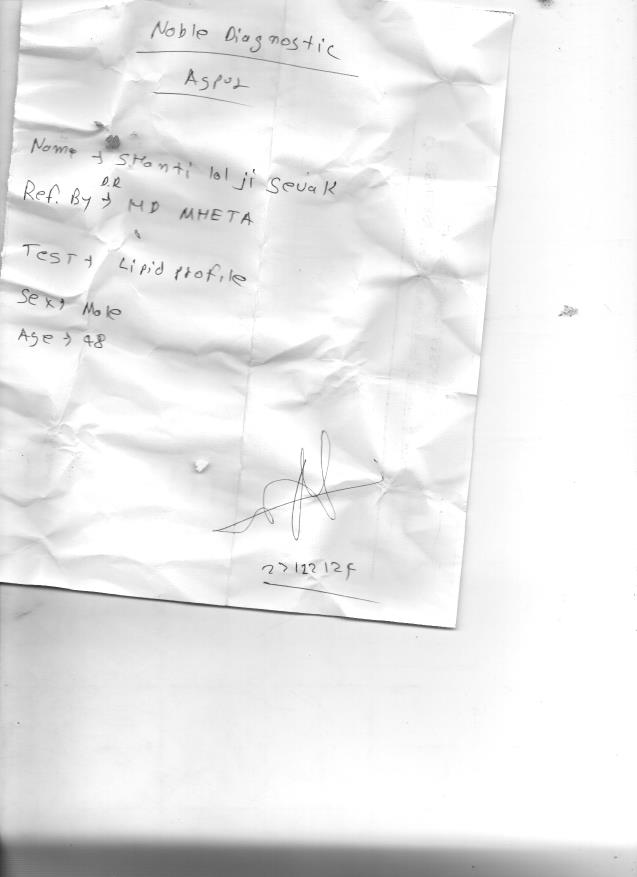 Noble Diagnostic
Aspur
Name → SHanti lal ji Sevak
Ref. By → D.R MD MHETA
Test → Lipid profile
Sex → Male
Age → 48